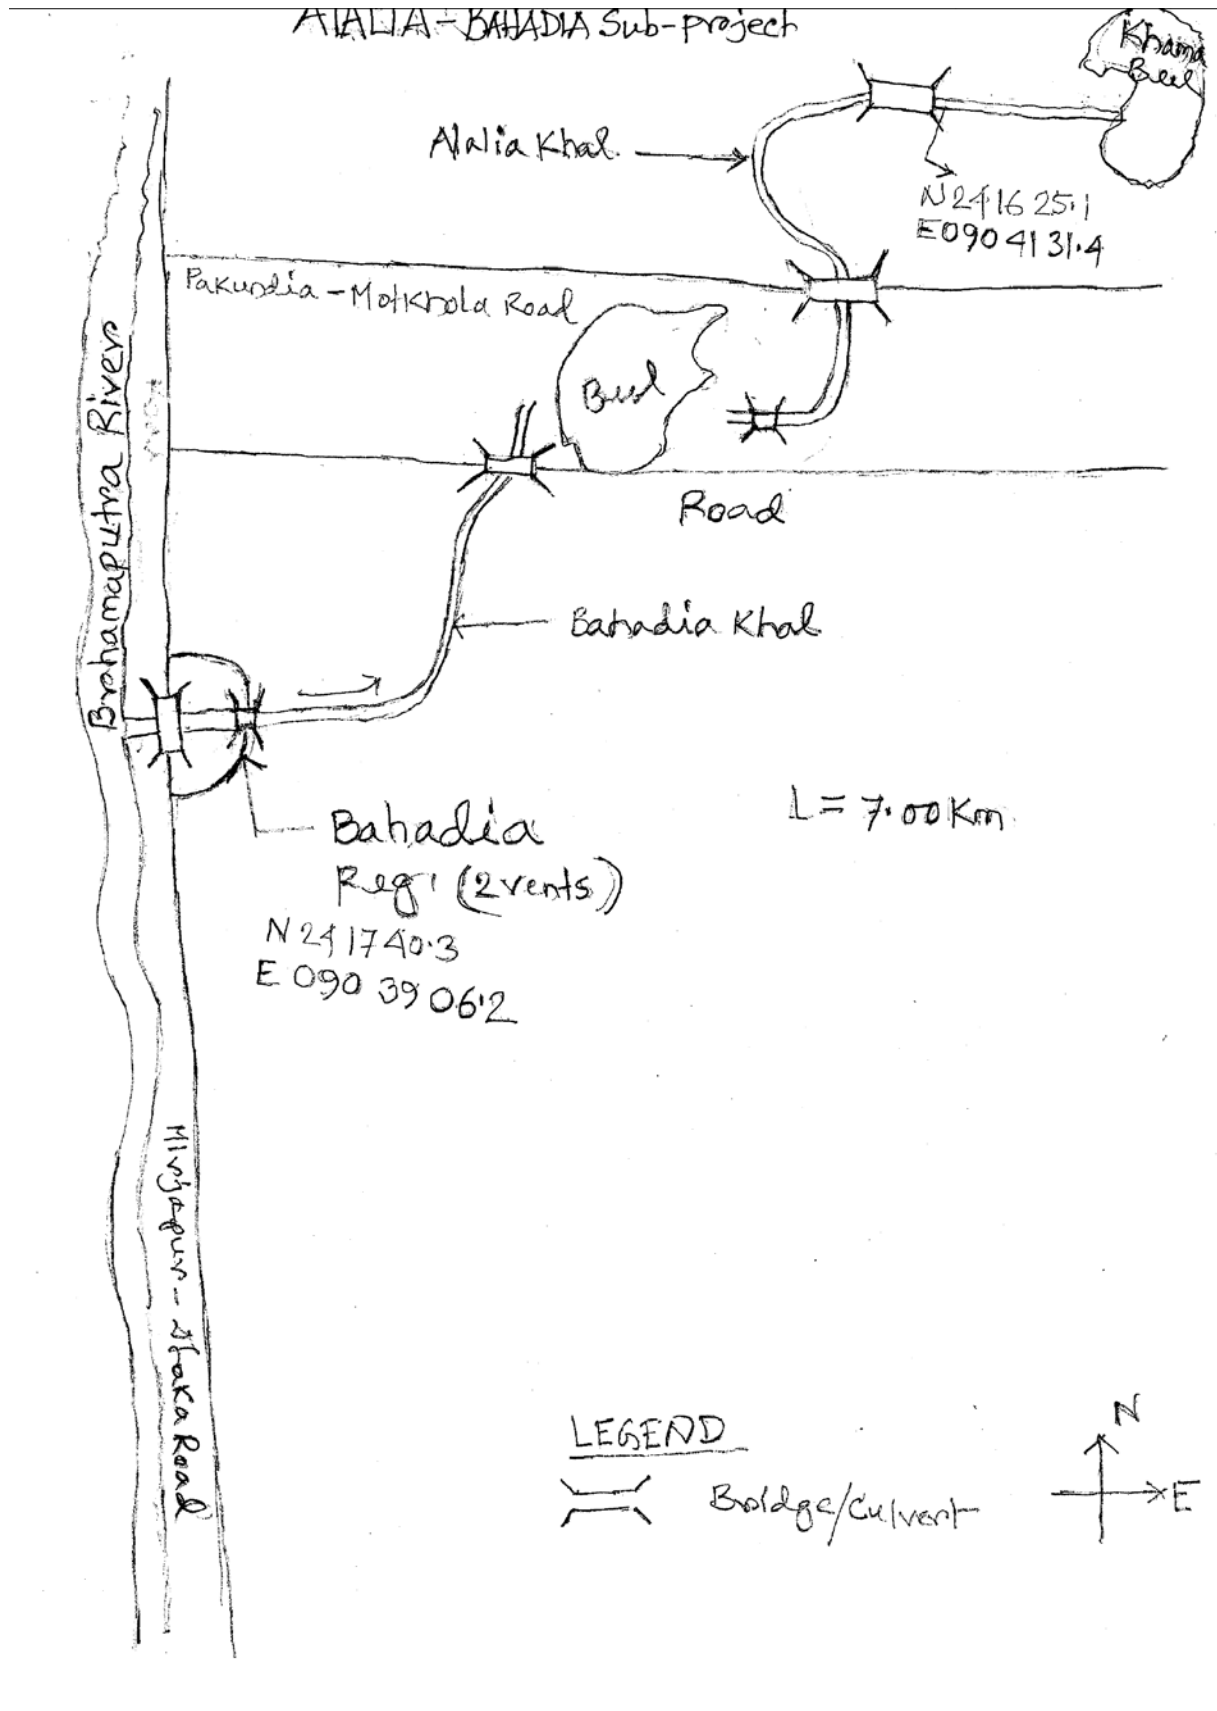 ALALIA-BAHADIA Sub-project
Khama
Beel
Alalia Khal
N24 16 25.1
E090 41 31.4
Pakundia - Motkhola Road
Beel
Brahamaputra River
Road
Bahadia Khal
L = 7.00 Km
Bahadia
Reg. (2 vents)
N 24 17 40.3
E 090 39 06.2
Mirjapur - Dhaka Road
LEGEND
Bridge/Culvert
N
E